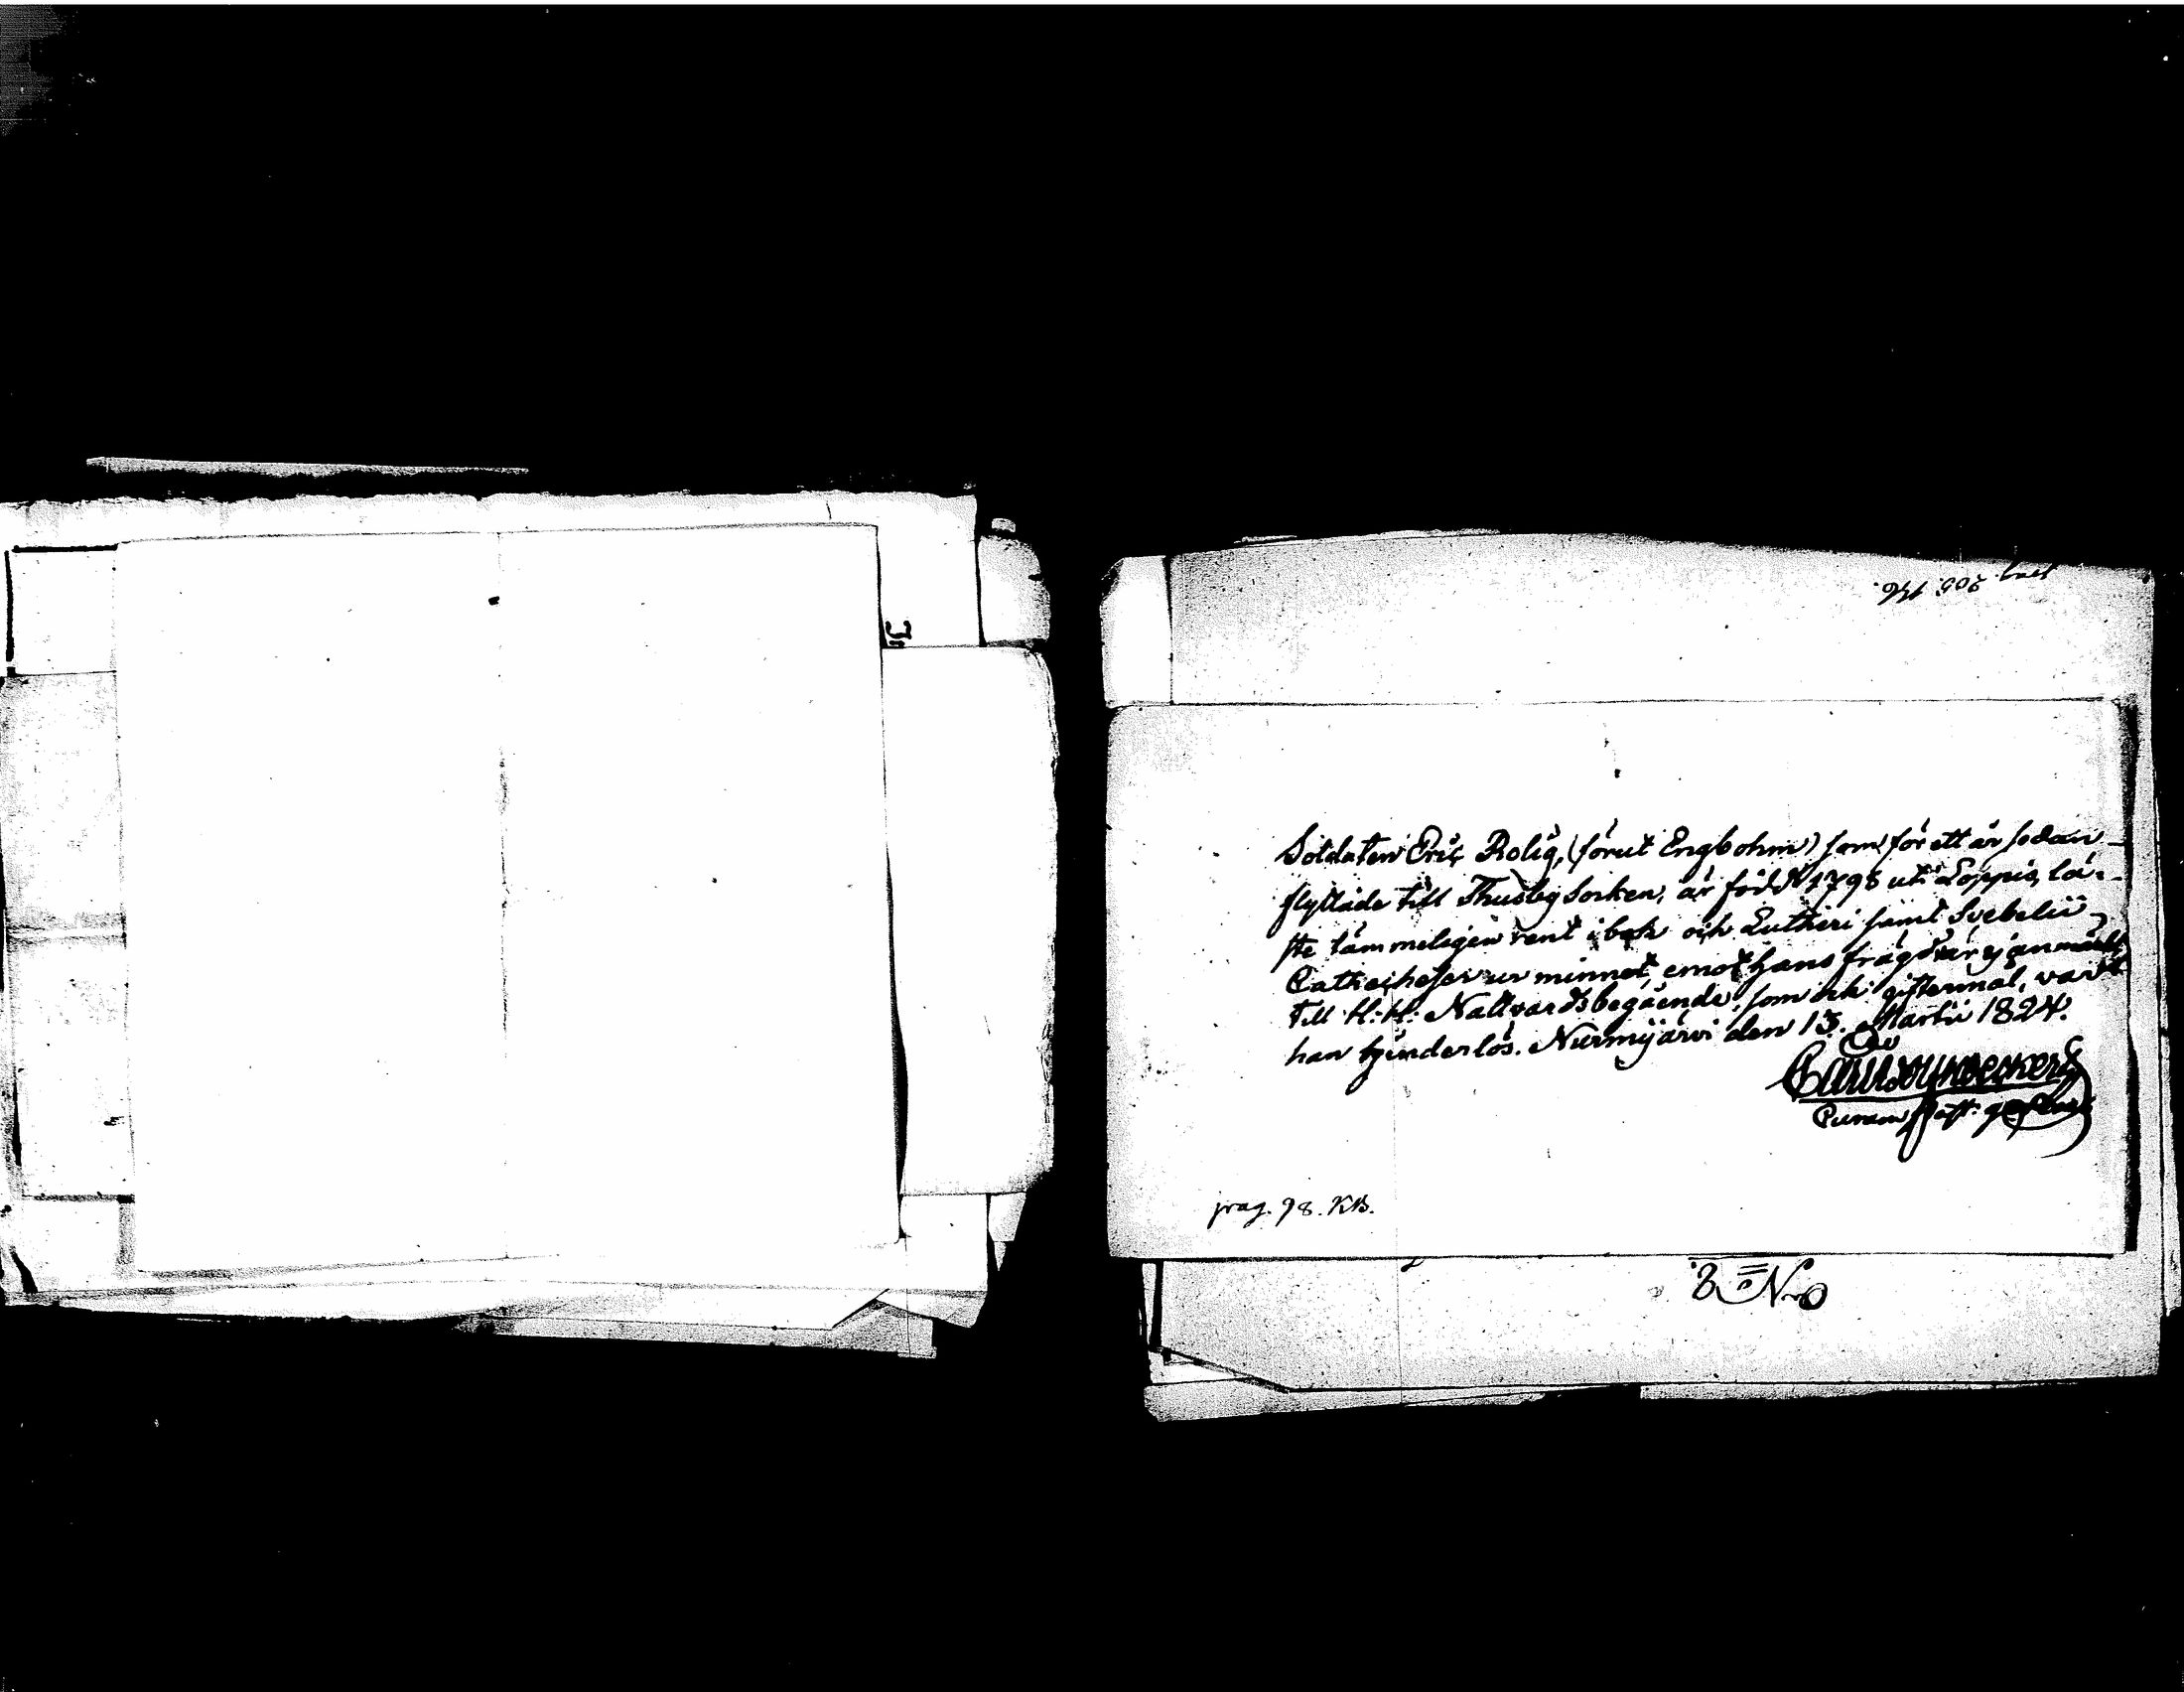 pag. 205. 146.
Soldaten Eric Rolig, (förut Engbohm) som för ett år sedan
flyttade till Thusby Socken, är född 1798 uti Loppis, lä-
ste tämmeligen rent i bok och Lutheri samt Svebelii
Cathecheser ur minnet, emot hans frägd är ej anmärkt
till H: H: Nattvards begående, som ock giftermål, var
han hinderlös. Nurmijärvi den 13. Martii 1824.
pag. 98. KB.
N:o 8.